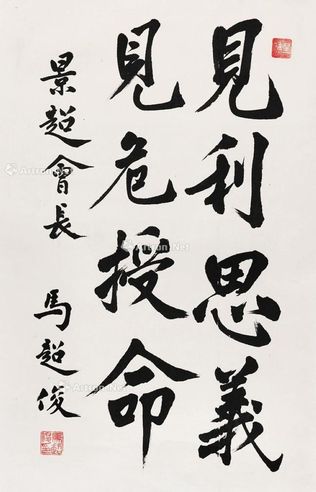 見利思義
見危授命
景超會長
馬超俊